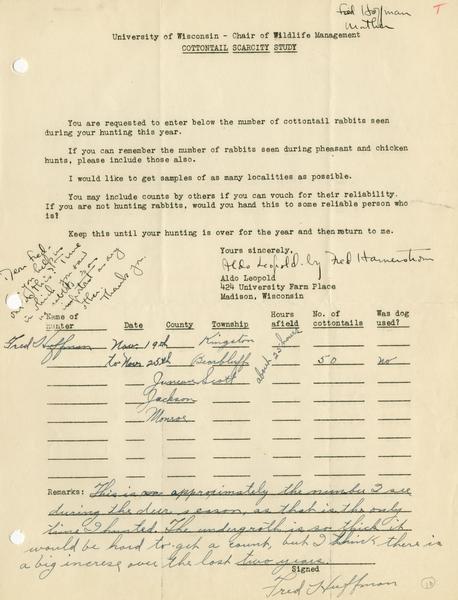 Fred Hoffman
Mather
T
University of Wisconsin - Chair of Wildlife Management
COTTONTAIL SCARCITY STUDY
You are requested to enter below the number of cottontail rabbits seen
during your hunting this year.
If you can remember the number of rabbits seen during pheasant and chicken
hunts, please include those also.
I would like to get samples of as many localities as possible.
You may include counts by others if you can vouch for their reliability.
If you are not hunting rabbits, would you hand this to some reliable person who
is?
Keep this until your hunting is over for the year and then return to me.
Yours sincerely,
Aldo Leopold - by Fred Hamerstrom
Aldo Leopold
424 University Farm Place
Madison, Wisconsin
Dear Fred-
Thank you.
Name of hunter Date County Township Hours afield No. of cottontails Was dog used?
Fred Huffman Nov. 19th Kingston
to Nov 25th Bearbluff about 20 hours 50 no
Juneau Scott
Jackson
Monroe
Remarks: This is approximately the number I see
during the deer season, as that is the only
time I hunted. The undergroth is so thick it
would be hard to get a count, but I think there is
a big increse over the last two years.
Signed
Fred Huffman